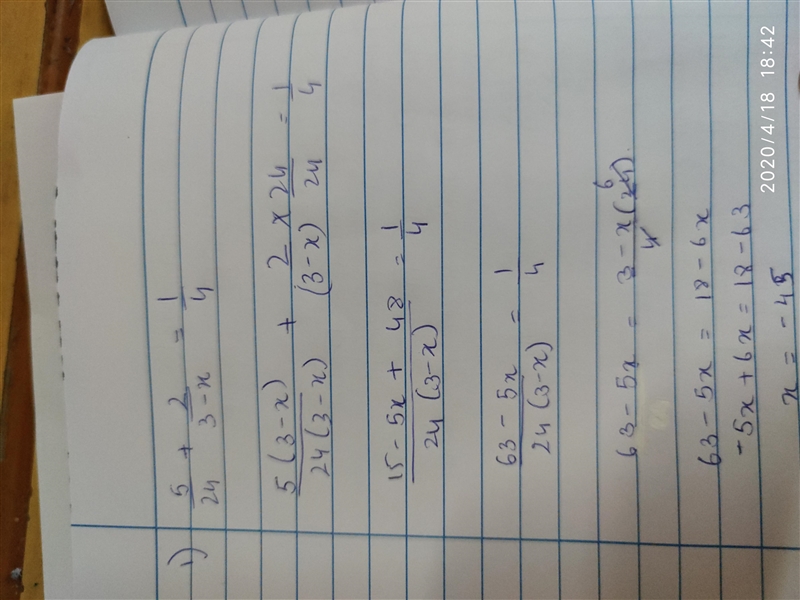 i) 5/24 + 2/(3-x) = 1/4
5(3-x)/24(3-x) + 2 × 24/(3-x) 24 = 1/4
15 - 5x + 48/24(3-x) = 1/4
63 - 5x/24(3-x) = 1/4
63 - 5x = 3 - x(24)/4 6
63 - 5x = 18 - 6x
-5x + 6x = 18 - 63
x = -45
2020/4/18 18:42